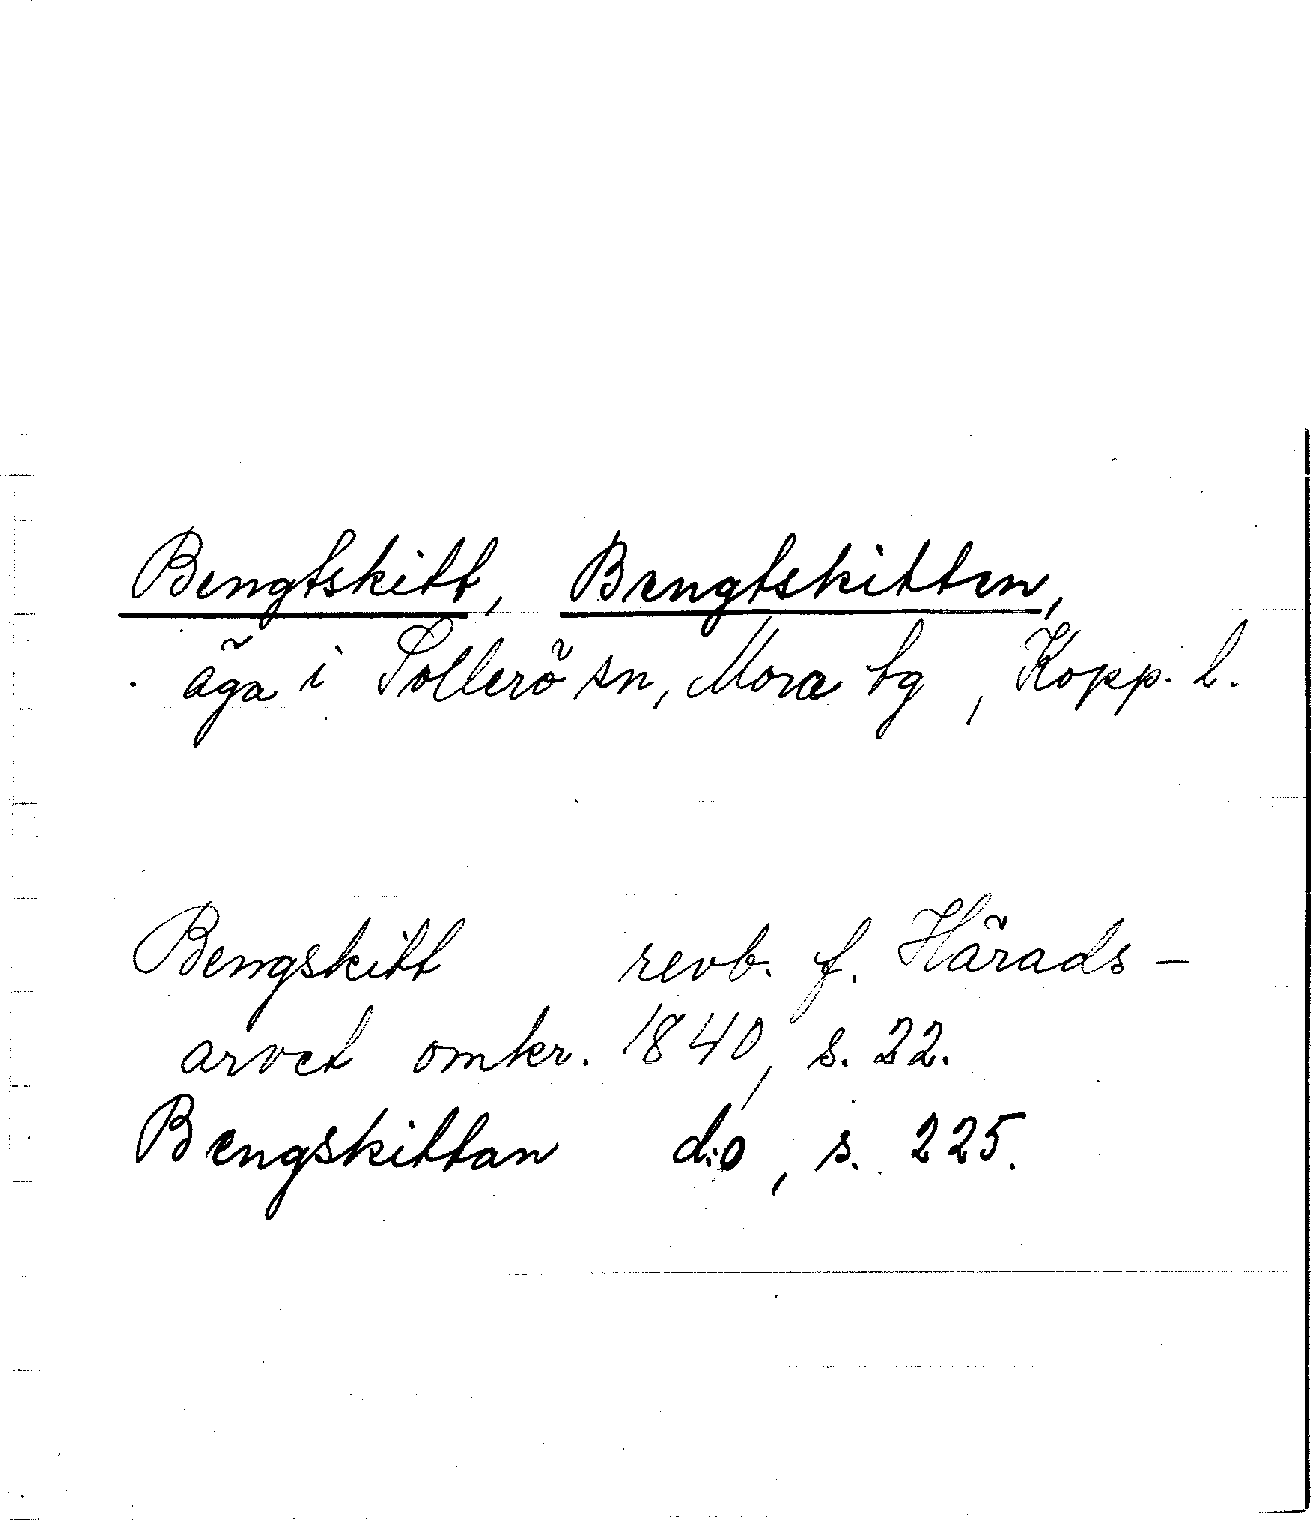 Bengtskitt, Bengtskitten,
äga i Sollerö sn, Mora bg, Kopp. l.
Bengskitt revb. f. Härads-
arvet omkr. 1840, s. 22.
Bengskittan d:o, s. 225.